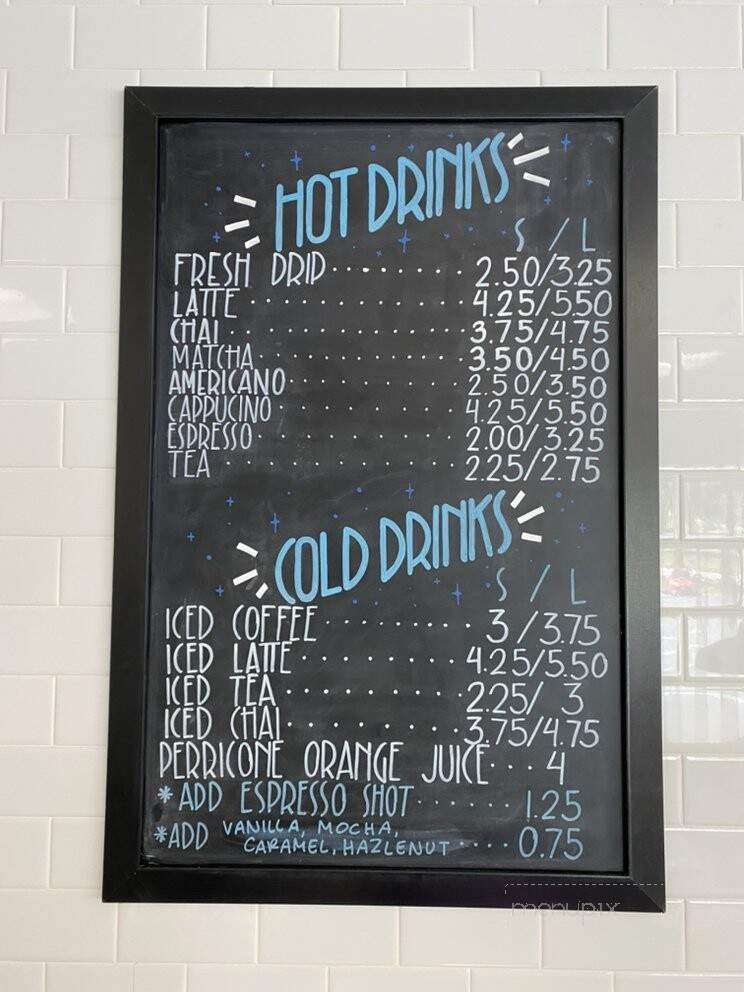 HOT DRINKS
S / L
FRESH DRIP ........ 2.50/3.25
LATTE ........ 4.25/5.50
CHAI ........ 3.75/4.75
MATCHA ........ 3.50/4.50
AMERICANO ........ 2.50/3.50
CAPPUCINO ........ 4.25/5.50
ESPRESSO ........ 2.00/3.25
TEA ........ 2.25/2.75
COLD DRINKS
S / L
ICED COFFEE ........ 3/3.75
ICED LATTE ........ 4.25/5.50
ICED TEA ........ 2.25/ 3
ICED CHAI ........ 3.75/4.75
PERRICONE ORANGE JUICE ... 4
*ADD ESPRESSO SHOT ...... 1.25
*ADD VANILLA, MOCHA,
CARAMEL, HAZLENUT .... 0.75
menupix